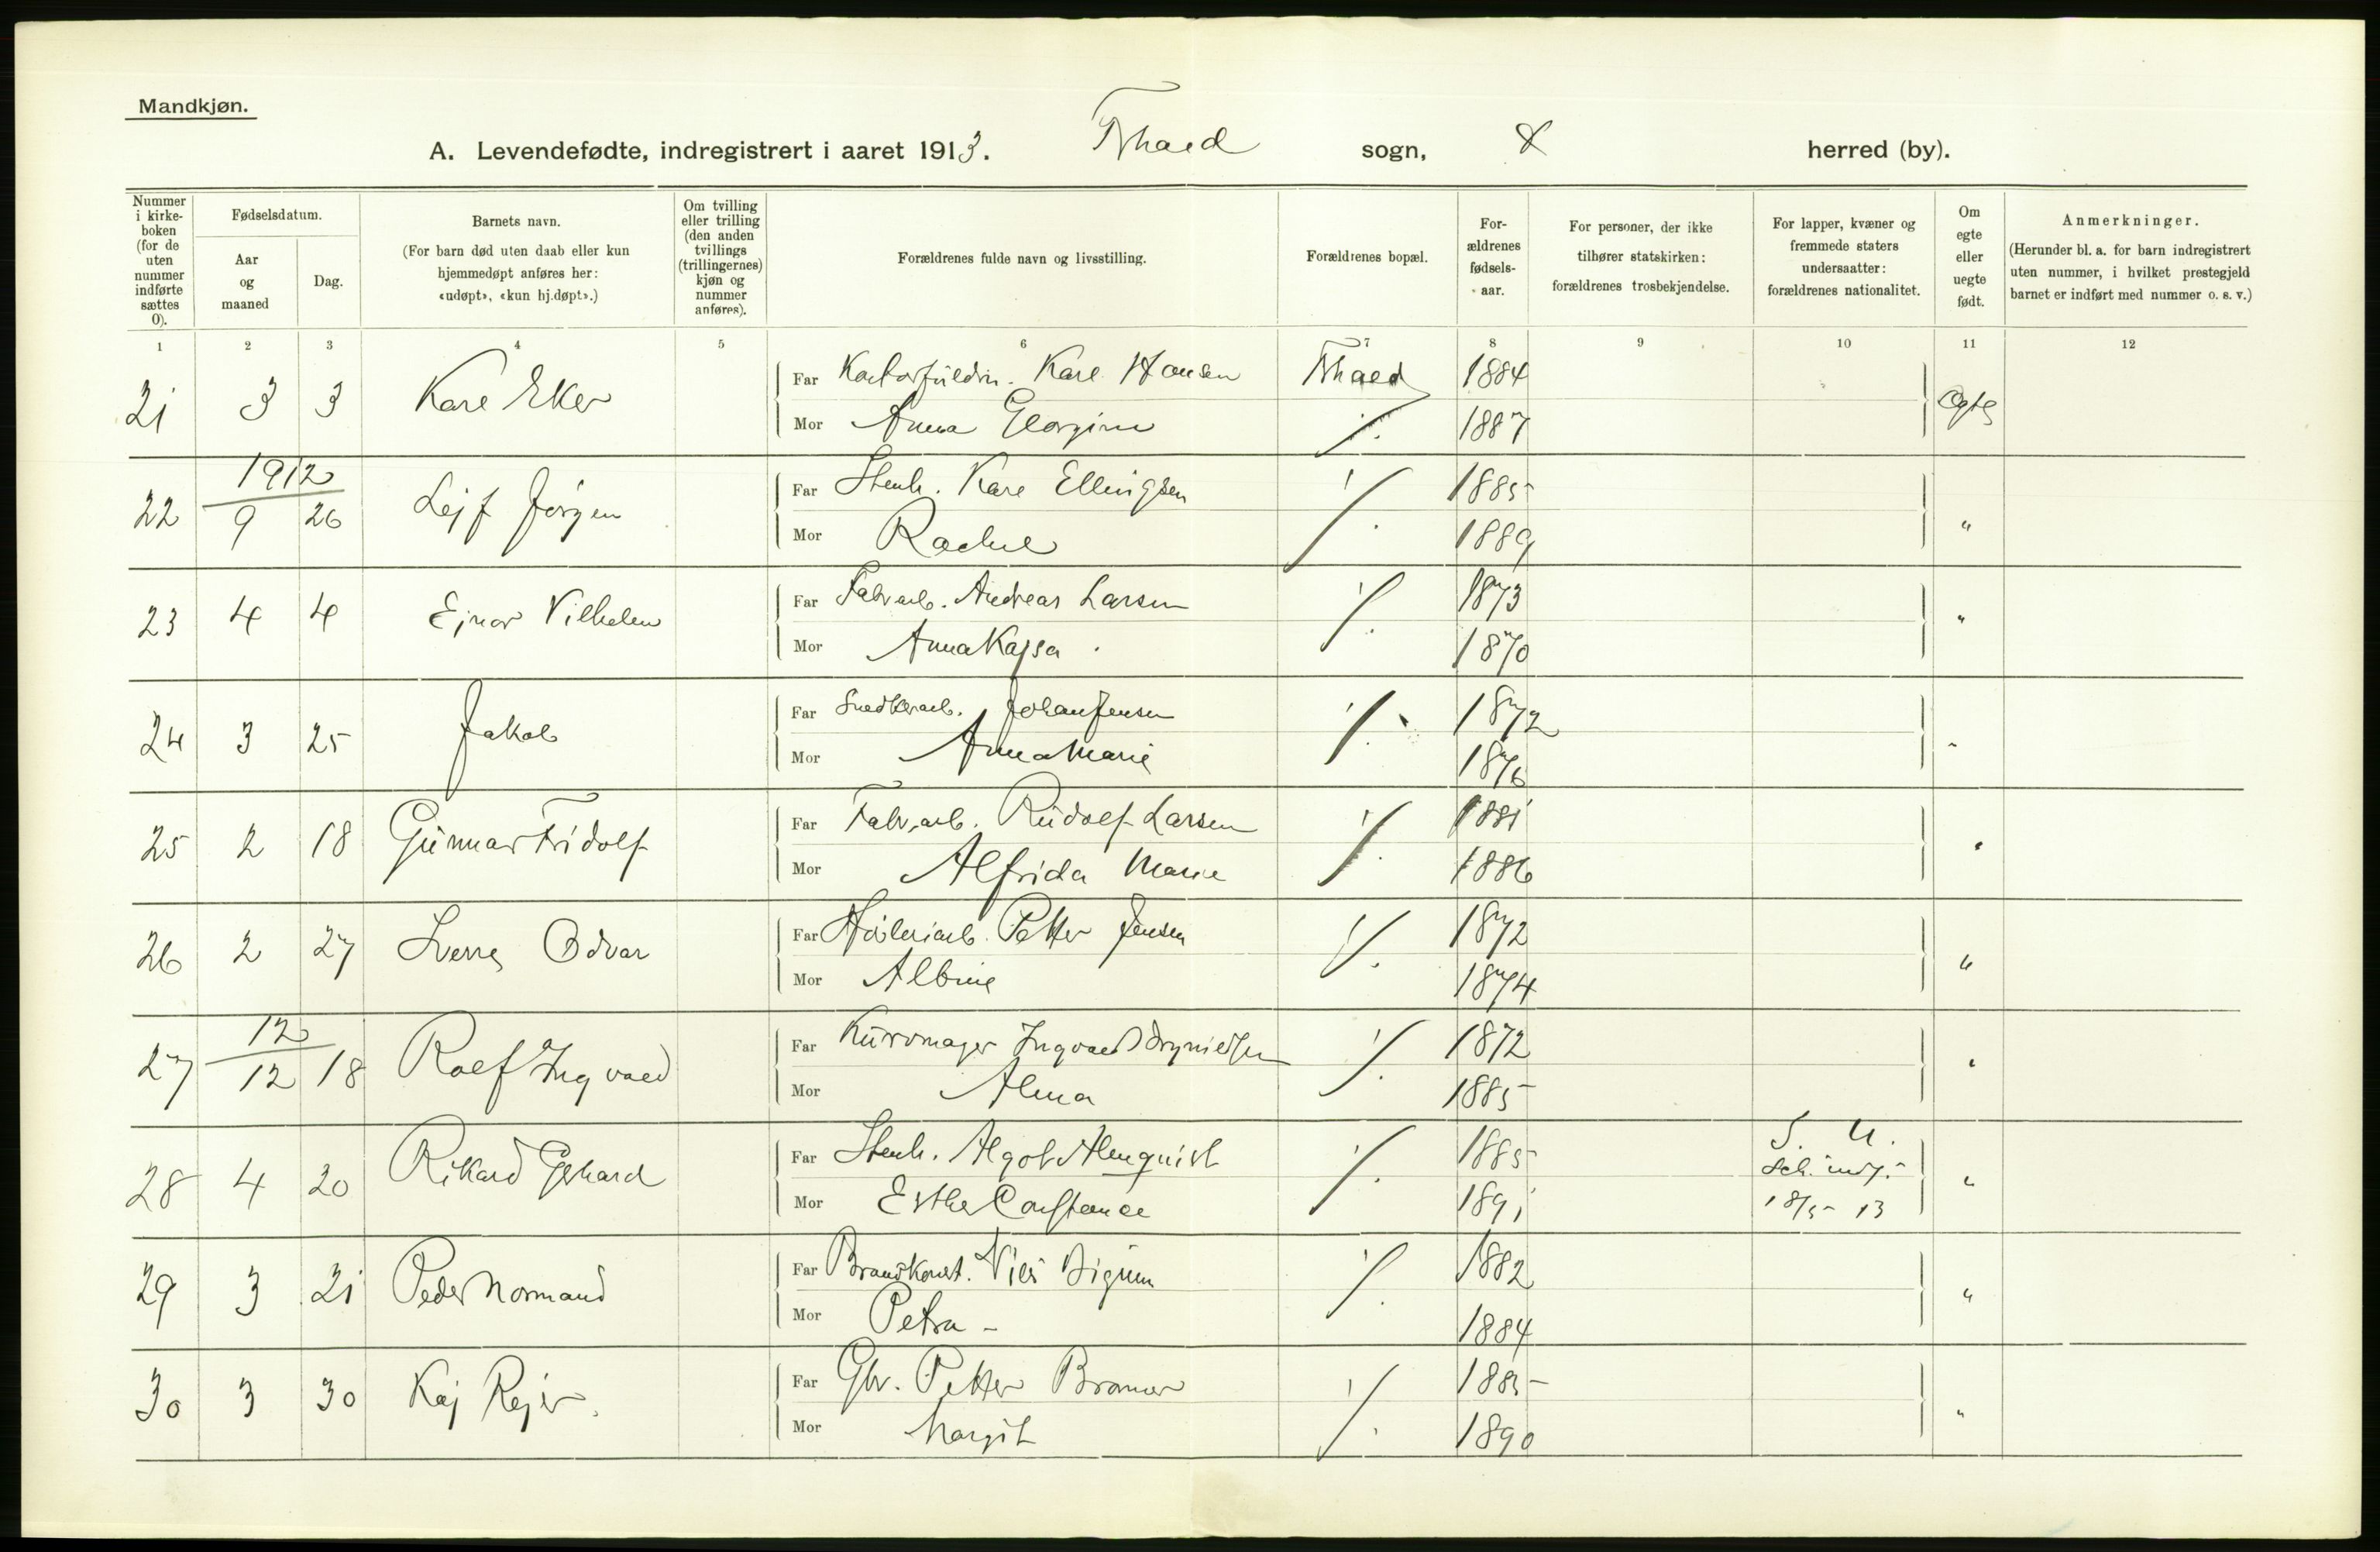 Mandkjøn.
A. Levendefødte, indregistrert i aaret 1913. Frhald sogn, herred (by).
Nummer i kirke-boken (for de uten nummer indførte sættes 0).
Fødselsdatum.
Aar og maaned
Dag.
Barnets navn.
(For barn død uten daab eller kun hjemmedøpt anføres her: «udøpt», «kun hj.døpt».)
Om tvilling eller trilling (den anden tvillings (trillingernes) kjøn og nummer anføres).
Forældrenes fulde navn og livsstilling.
Forældrenes bopæl.
For-ældrenes fødsels-aar.
For personer, der ikke tilhører statskirken: forældrenes trosbekjendelse.
For lapper, kvæner og fremmede staters undersaatter: forældrenes nationalitet.
Om egte eller uegte født.
Anmerkninger.
(Herunder bl. a. for barn indregistrert uten nummer, i hvilket prestegjeld barnet er indført med nummer o. s. v.)
1 2 3 4 5 6 7 8 9 10 11 12
21 3 3 Karl Far Karl Hansen Frhald 1884 Egte
Mor Anna Georgine ٪ 1887
1912
22 9 26 Lejf Jörgen Far Stenh. Karl Ellingsen ٪ 1885 "
Mor Rachel 1889
23 4 4 Ejnar Vilhelm Far Fabr.arb. Andreas Larsen ٪ 1873 "
Mor Anna Kajsa 1870
24 3 25 Jakob Far Snedkerarb. Johan Jensen ٪ 1872 "
Mor Anna Marie 1876
25 2 18 Gunnar Fridolf Far Fabr.arb. Rudolf Larsen ٪ 1881 "
Mor Alfrida Marie 1886
26 2 27 Sverre Odvar Far Høvleriarb. Petter Jensen ٪ 1872 "
Mor Albine 1874
12
27 12 18 Rolf Ingvald Far Kurvmager Ingvald Brynildsen ٪ 1872 "
Mor Alma 1885
28 4 20 Rikard Gerhard Far Stenh. Algot Almquist ٪ 1885 S. U. "
Mor Esther Constance 1891 18/5 13
29 3 21 Peder Normand Far Brandkonst. Nils ٪ 1882 "
Mor Petra 1884
30 3 30 Kaj Rejer Far Gbr. Petter ٪ 1885 "
Mor Margit 1890